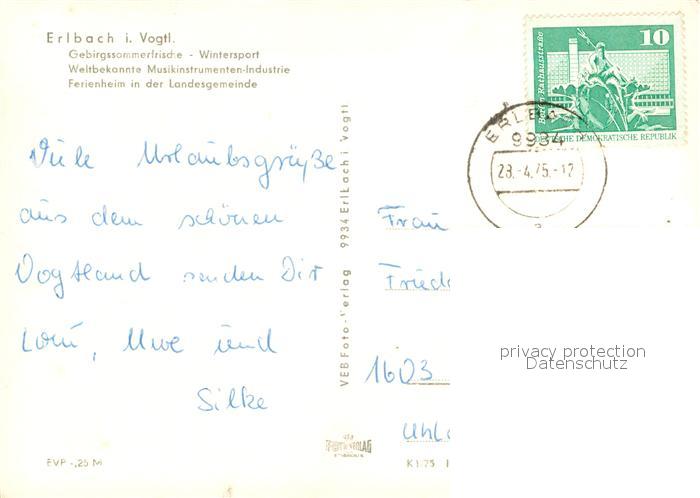 Erlbach i. Vogtl.
Gebirgssommerfrische - Wintersport
Weltbekannte Musikinstrumenten-Industrie
Ferienheim in der Landesgemeinde
Viele Urlaubsgrüße
aus dem schönen
Vogtland senden Dir
Uwe und
Silke
VEB Foto-Verlag 9934 Erlbach i. Vogtl
EVP -,25 M
K 1/75
10
Berlin, Rathausstraße
DEUTSCHE DEMOKRATISCHE REPUBLIK
9934
28.-4.75.-12
a
Frau
1603
privacy protection
Datenschutz